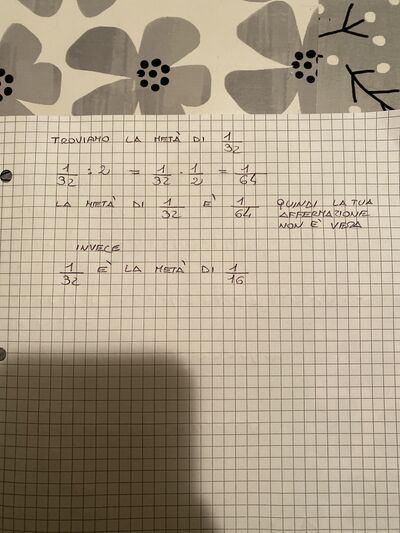 TROVIAMO LA METÀ DI 1/32
1/32 : 2 = 1/32 · 1/2 = 1/64
LA METÀ DI 1/32 È 1/64 QUINDI LA TUA
AFFERMAZIONE
NON È VERA
INVECE
1/32 È LA METÀ DI 1/16